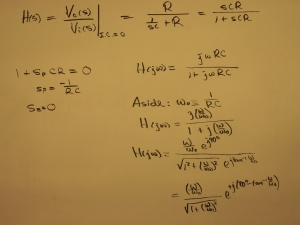 H(s) = V₀(s)/Vᵢ(s) |I.C.=0 = R/(1/sC + R) = sCR/(1 + sCR)
1 + sₚCR = 0
sₚ = -1/RC
s₀=0
H(jω) = jωRC/(1 + jωRC)
Aside: ω₀ = 1/RC
H(jω) = j(ω/ω₀)/(1 + j(ω/ω₀))
H(jω) = (ω/ω₀) e^(j90°)/(√(1² + (ω/ω₀)²) e^(j tan⁻¹ ω/ω₀))
= (ω/ω₀)/√(1 + (ω/ω₀)²) e^(+j(90° - tan⁻¹ ω/ω₀))